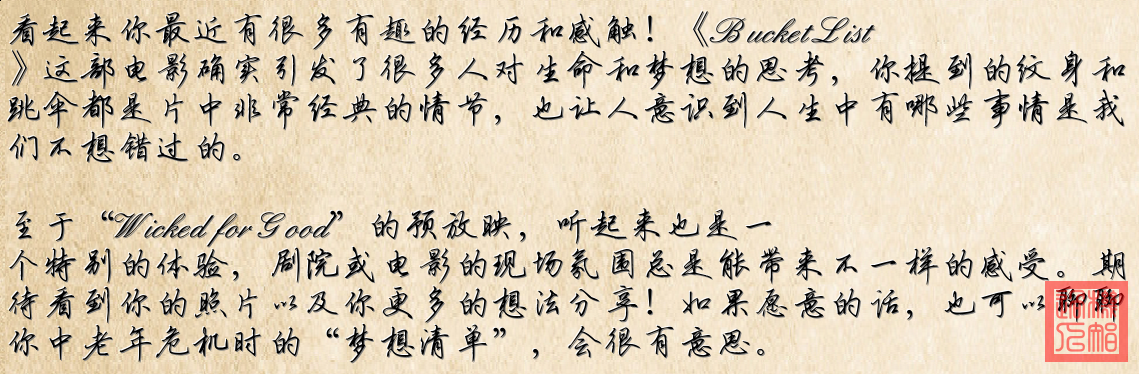 看起来你最近有很多有趣的经历和感触！《Bucket List
》这部电影确实引发了很多人对生命和梦想的思考，你提到的纹身和
跳伞都是片中非常经典的情节，也让人意识到人生中有哪些事情是我
们不想错过的。
至于“Wicked for Good”的预放映，听起来也是一
个特别的体验，剧院或电影的现场氛围总是能带来不一样的感受。期
待看到你的照片以及你更多的想法分享！如果愿意的话，也可以聊聊
你中老年危机时的“梦想清单”，会很有意思。